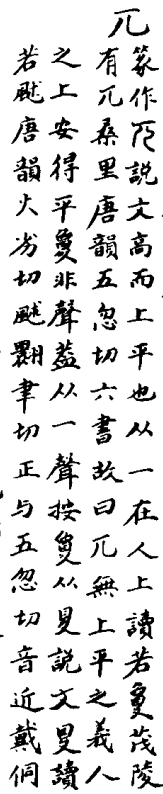 兀
篆作兀說文高而上平也从一在人上讀若敻茂陵
有兀桑里唐韻五忽切六書故曰兀無上平之義人
之上安得平敻非聲葢从一聲按敻从𥄎說文𥄎讀
若䬂唐韻火劣切䬂翾聿切正与五忽切音近戴侗